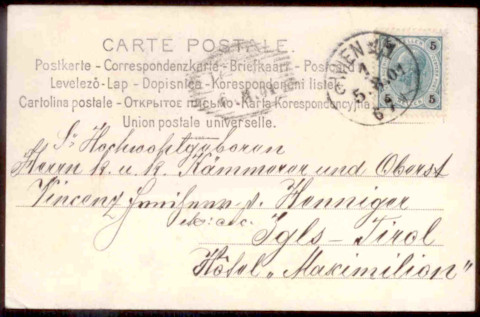 CARTE POSTALE.
Postkarte - Correspondenzkarte - Briefkaart - Postcard
Levelező-Lap - Dopisnica - Korespondenční listek
Cartolina postale - ОТКРЫТОЕ ПИСЬМО - Karta Korespondencyjna
Union postale universelle.
5 5
WIEN
Sr Hochwohlgeboren
Herrn k. u. k. Kämmerer und Oberst
Vincenz Freiherrn v. Henniger
etc. etc.
Igls - Tirol
Hôtel „Maximilian"